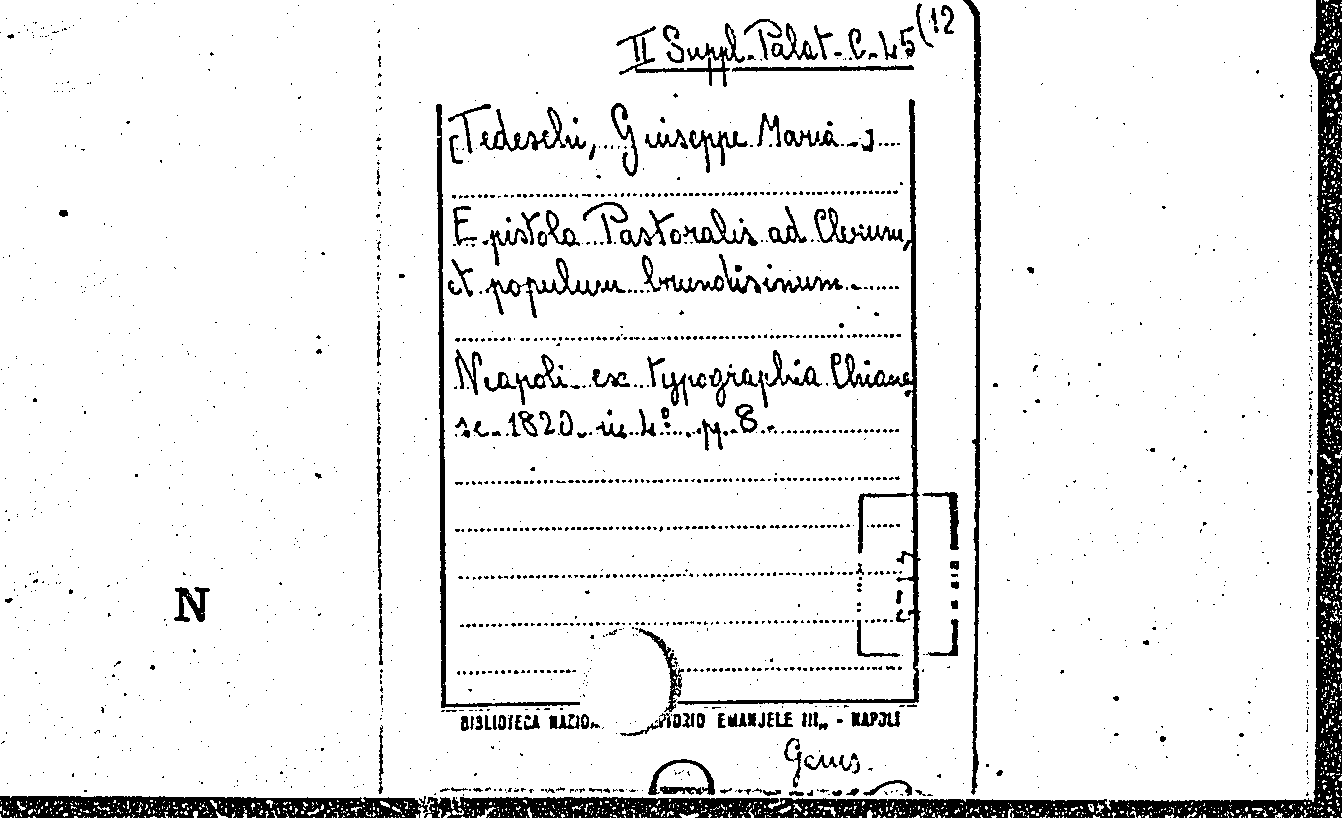 II Suppl. Palat. C. 45(12
[Tedeschi, Giuseppe Maria.]
Epistola Pastoralis ad Clerum,
et populum brundisinum.
Neapoli ex typographia Chiane
se 1820 in 4º. p. 8.
N
BIBLIOTECA NAZIO EMANUELE III„ - NAPOLI